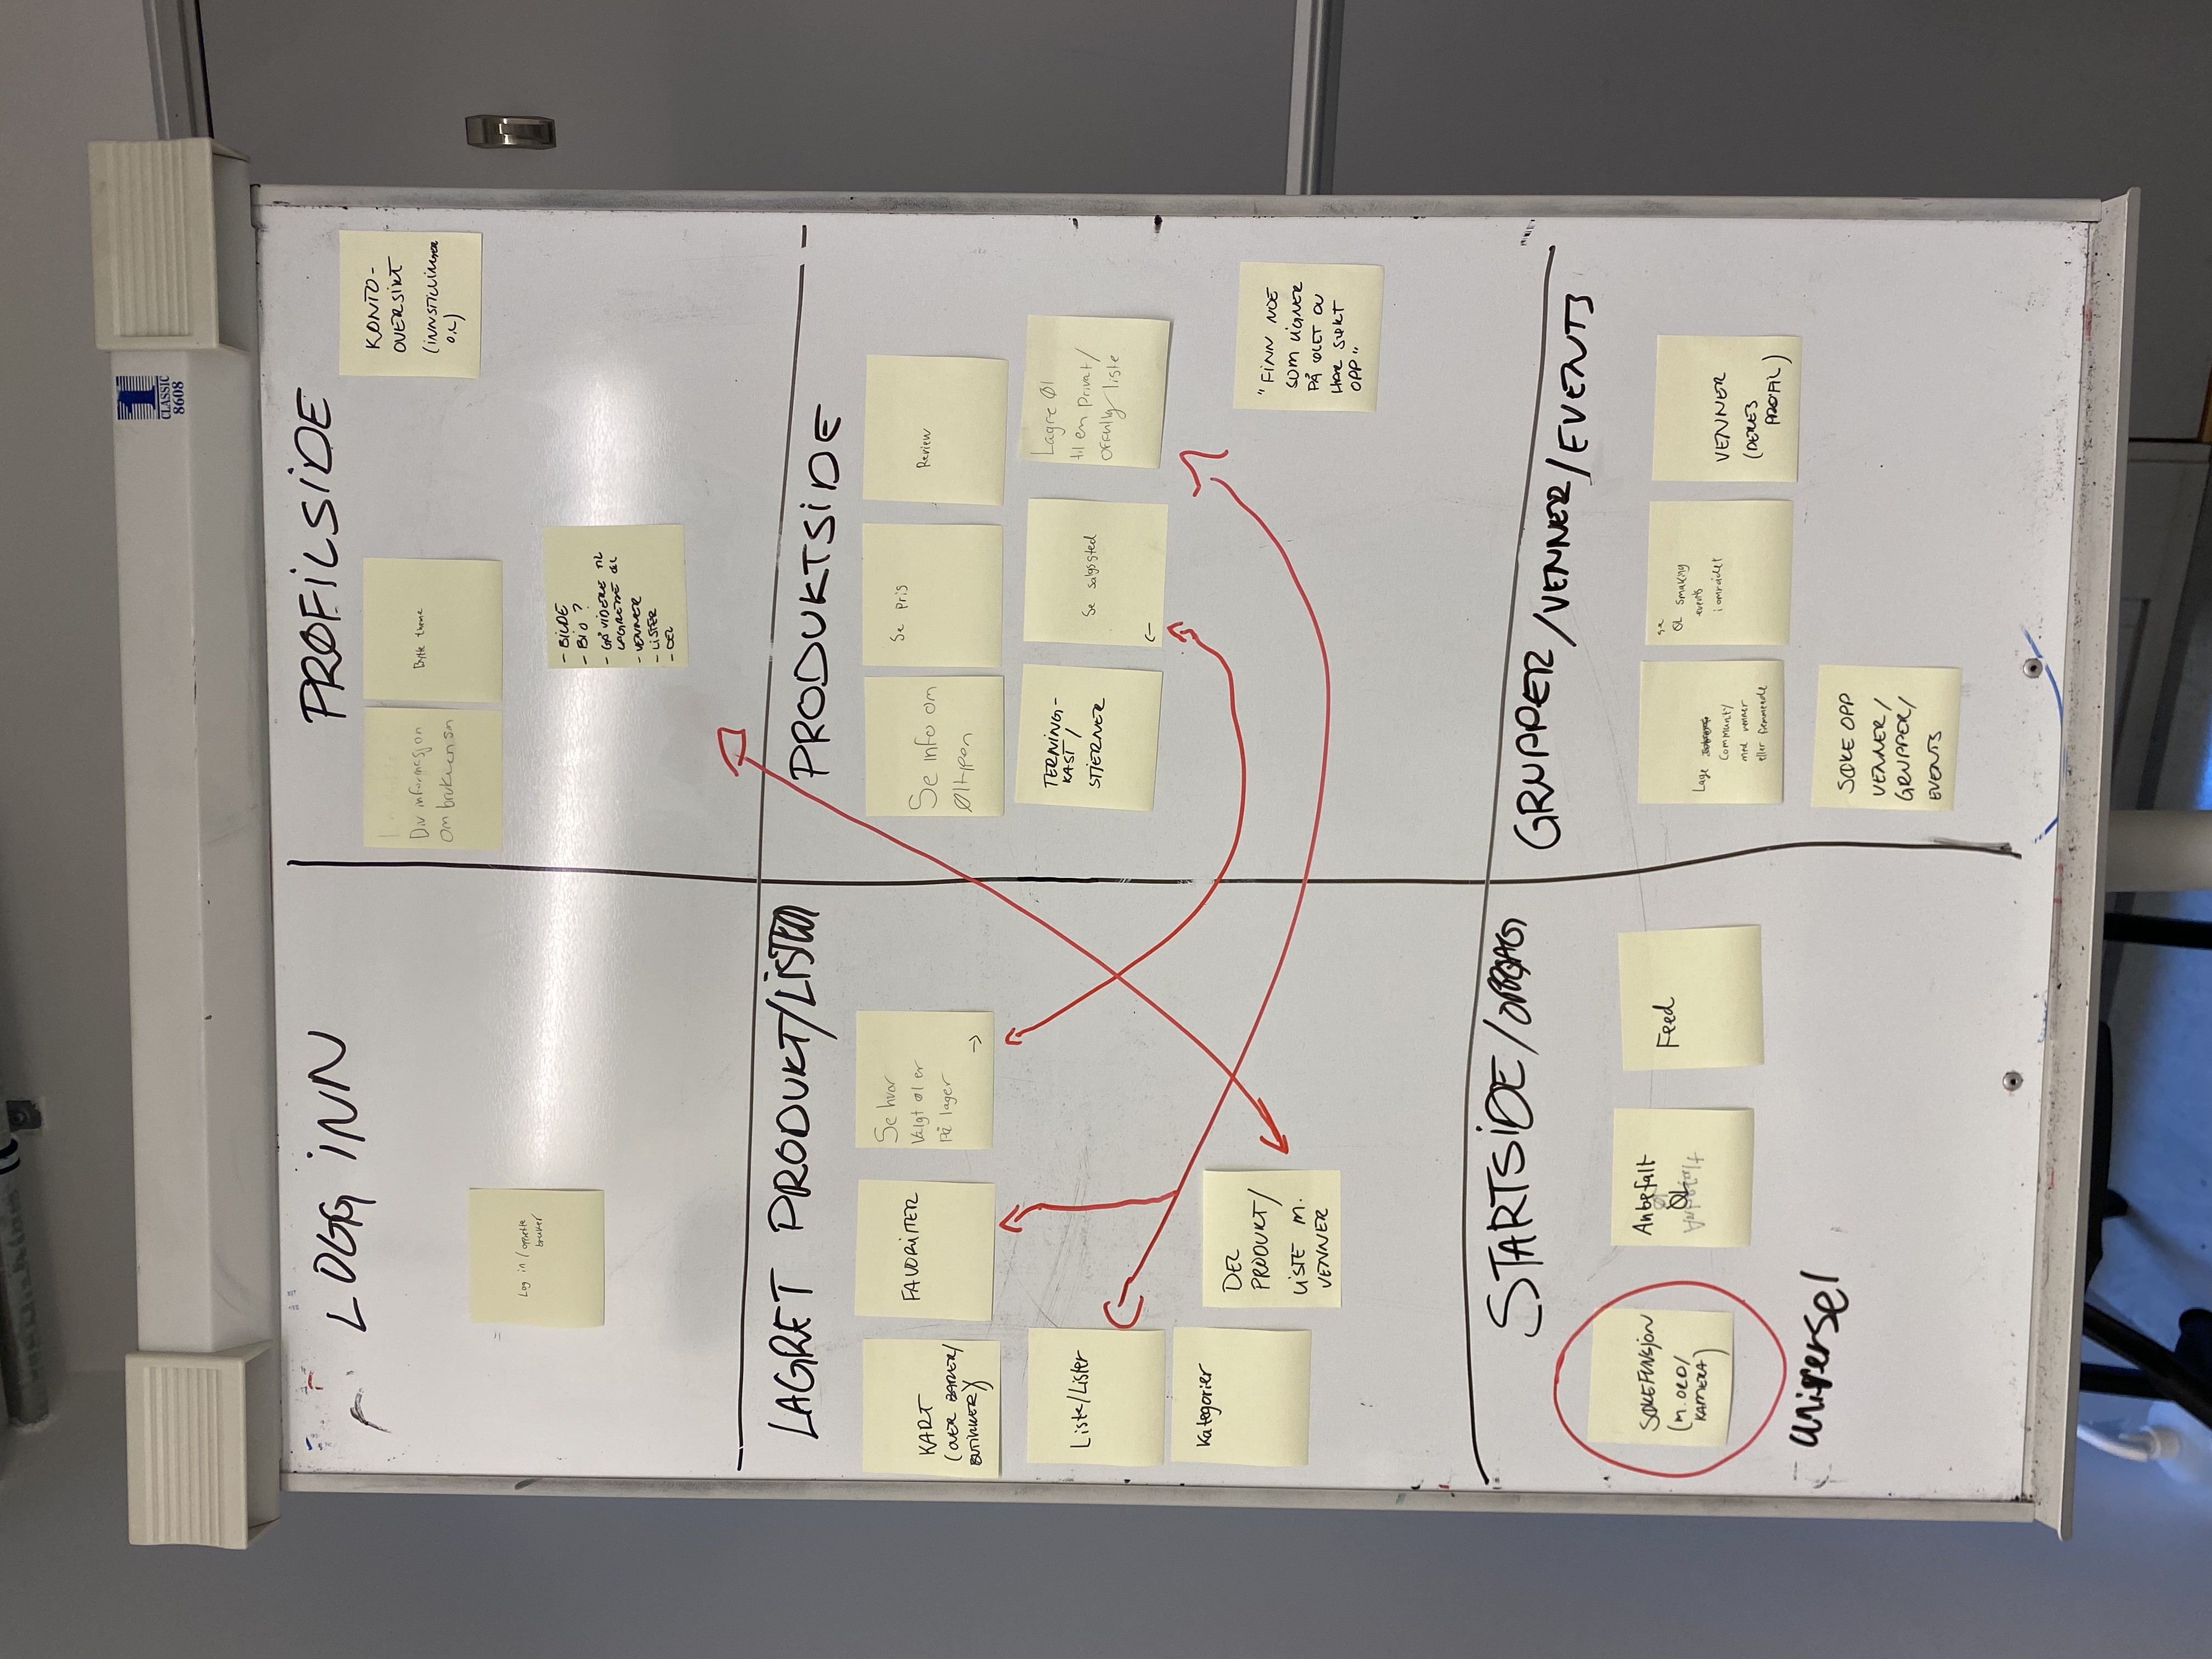 1
CLASSIC
8608
LOGG INN
Log in / opprette
bruker
PROFILSIDE
Div informasjon
om brukeren sin
Bytte theme
KONTO-
OVERSIKT
(INNSTILLINGER
O.L)
- BILDE
- BIO ?
- GÅ VIDERE TIL
LAGREDE ØL
- VENNER
- LISTER
- DEL
LAGRET PRODUKT/LISTER
KART
(OVER BARER/
BUTIKKER)
FAVORITTER
Se hvor
Valgt øl er
På lager
→
Liste/Lister
Kategorier
DEL
PRODUKT/
LISTE M.
VENNER
PRODUKTSIDE
Se info om
Øltypen
Se pris
Review
TERNING-
KAST /
STJERNER
Se salgssted
←
Lagre Øl
til en privat/
offentlig liste
"FINN NOE
SOM LIGNER
PÅ ØLET DU
HAR SØKT
OPP"
STARTSIDE/OPPDAG
SØKEFUNSJON
(M. ORD/
KAMERA)
universel
Anbefalt
ØL
Feed
GRUPPER/VENNER/EVENTS
Lage
Community
med venner
eller fremmende
se
ØL smaking
events
i området
VENNER
(DERES
PROFIL)
SØKE OPP
VENNER/
GRUPPER/
EVENTS